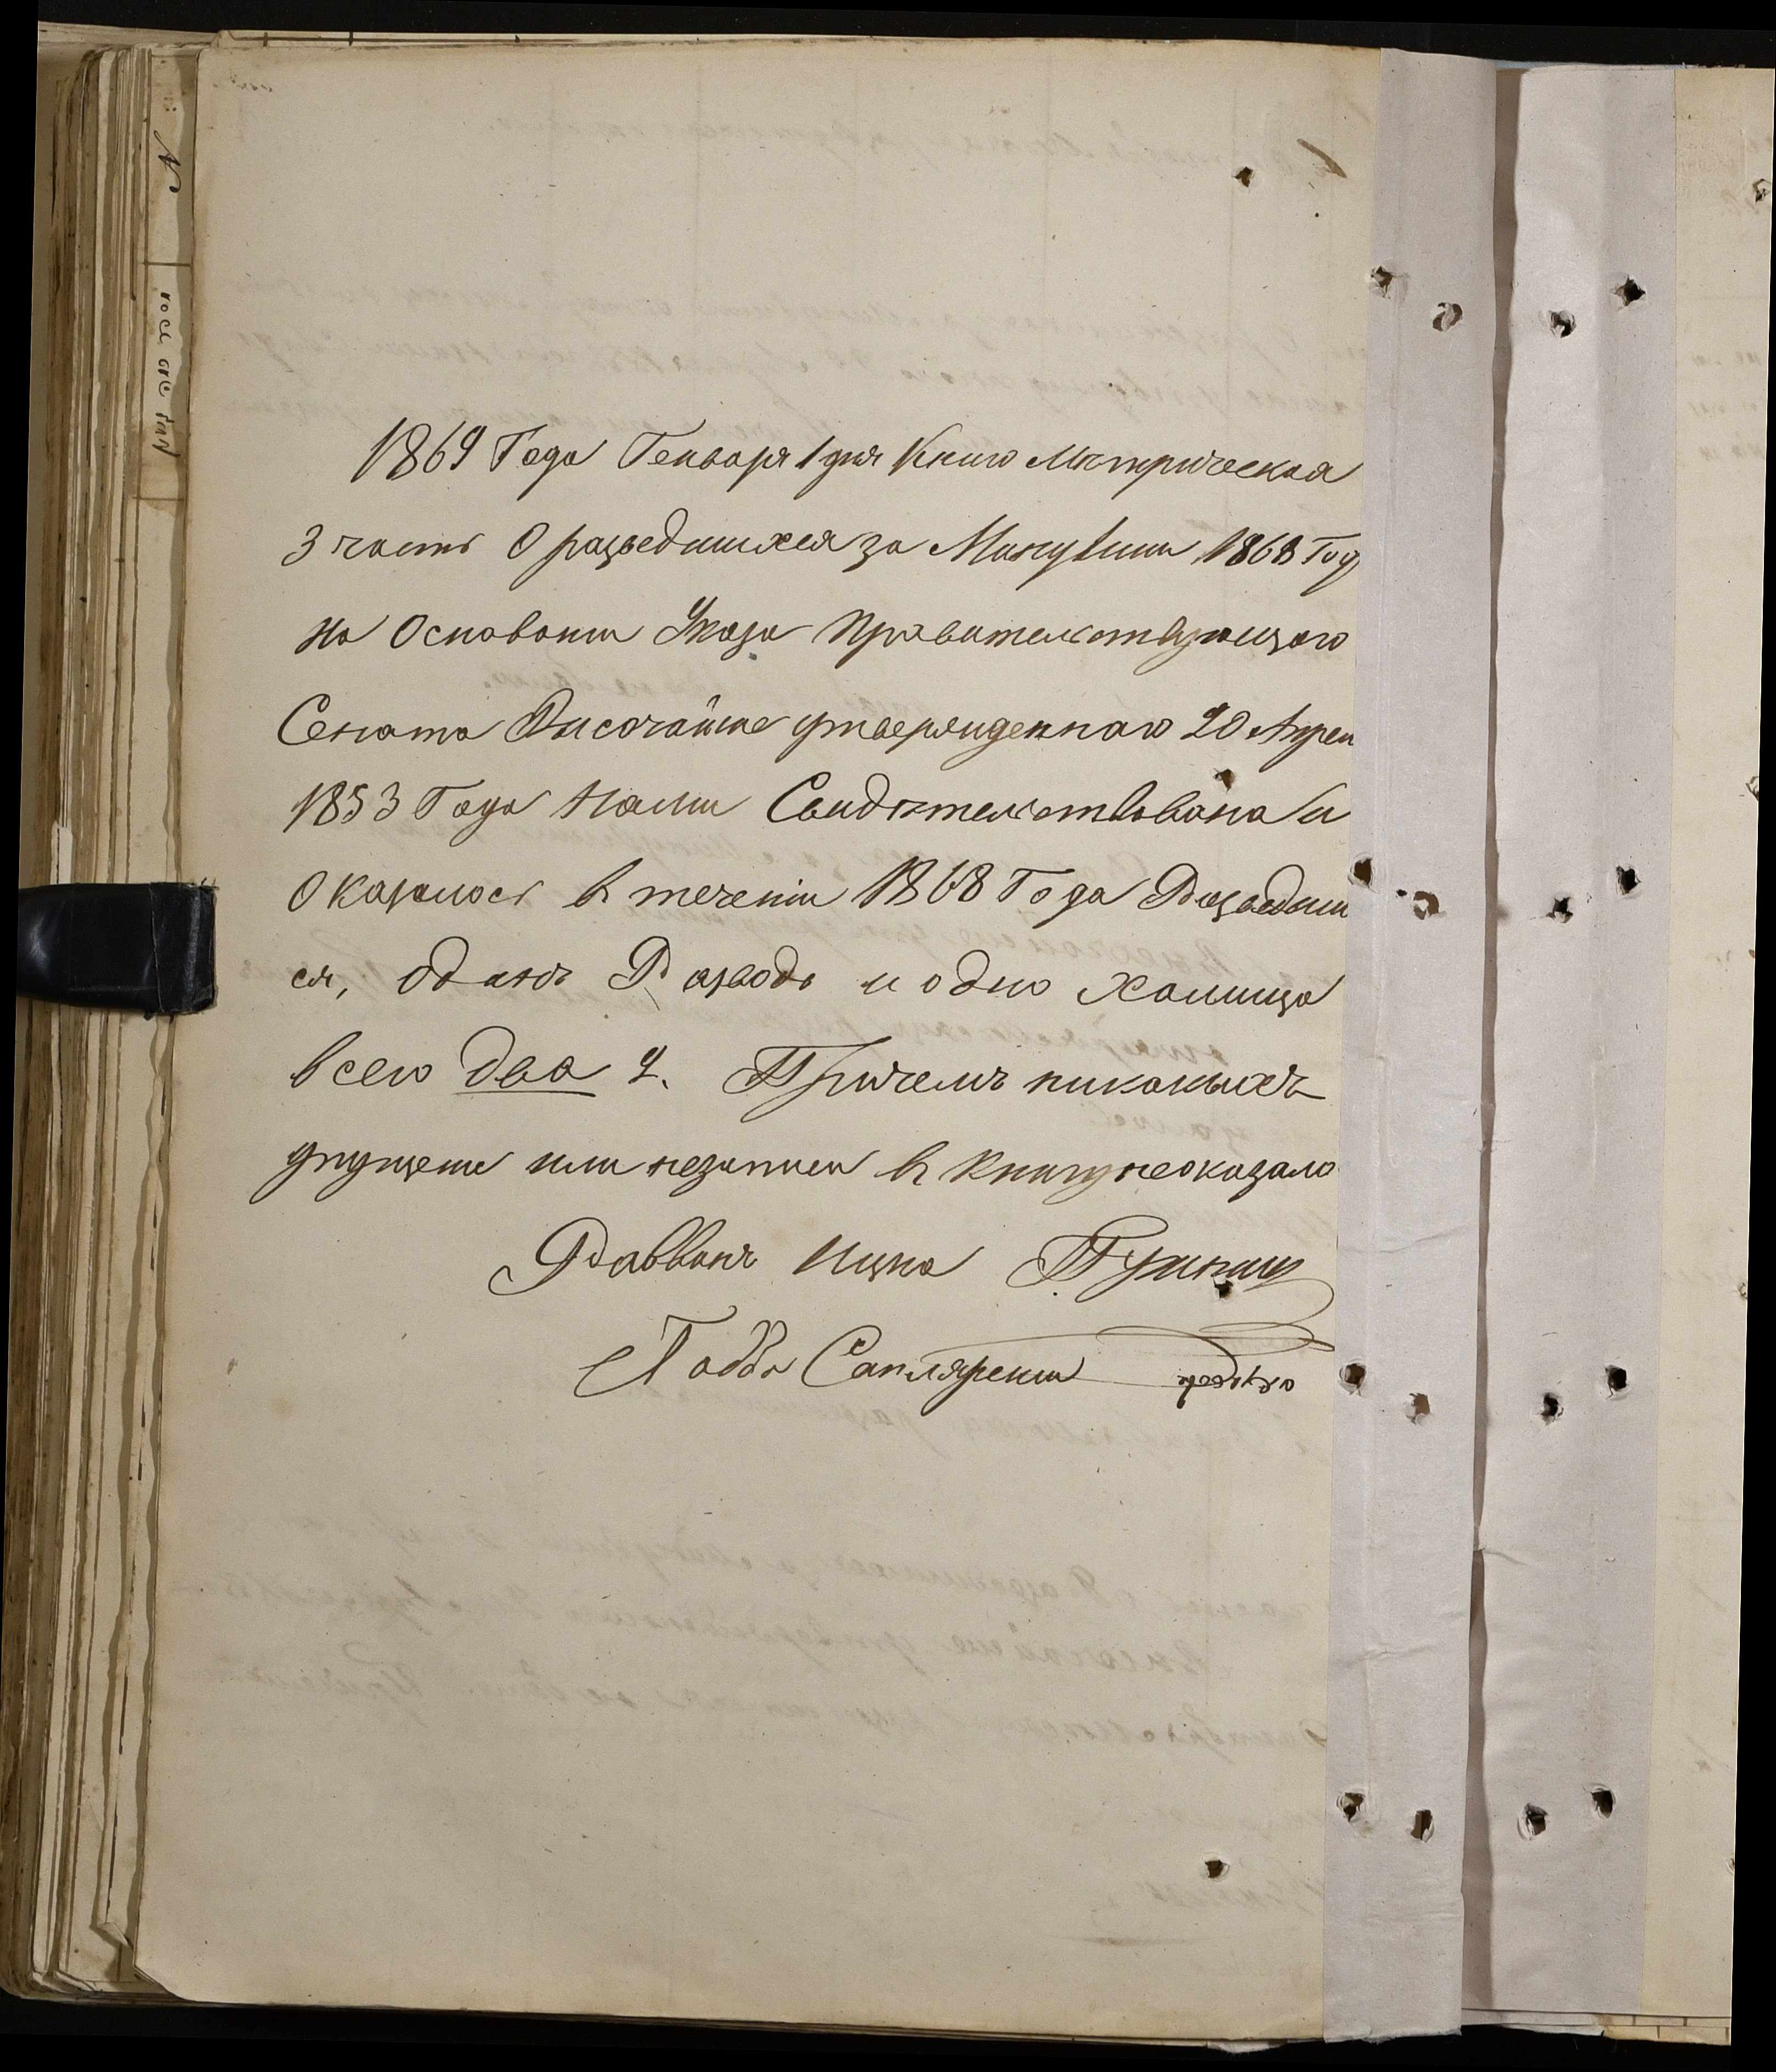 1869 Года Генваря 1 дня Книга Метрическая
3 часть О разведшихся за Минувши 1868 Год
на Основании Указа Правительствующаго
Сената Высочайше утвержденнаго 20 Апрел
1853 Года Нами Свидетельствована и
Оказалось в течении 1868 Года Разведши
ся, один Разводъ и одно Халица
всего два 2. Причемъ никакихъ
упущение или незаписи в Книгу неоказало
Раввинъ Ицка
Габбе